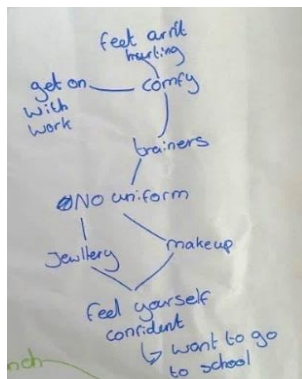 feet arn't
hurting
get on
with
work
comfy
trainers
NO uniform
Jewllery
makeup
feel yourself
conrident
want to go
to school
nch